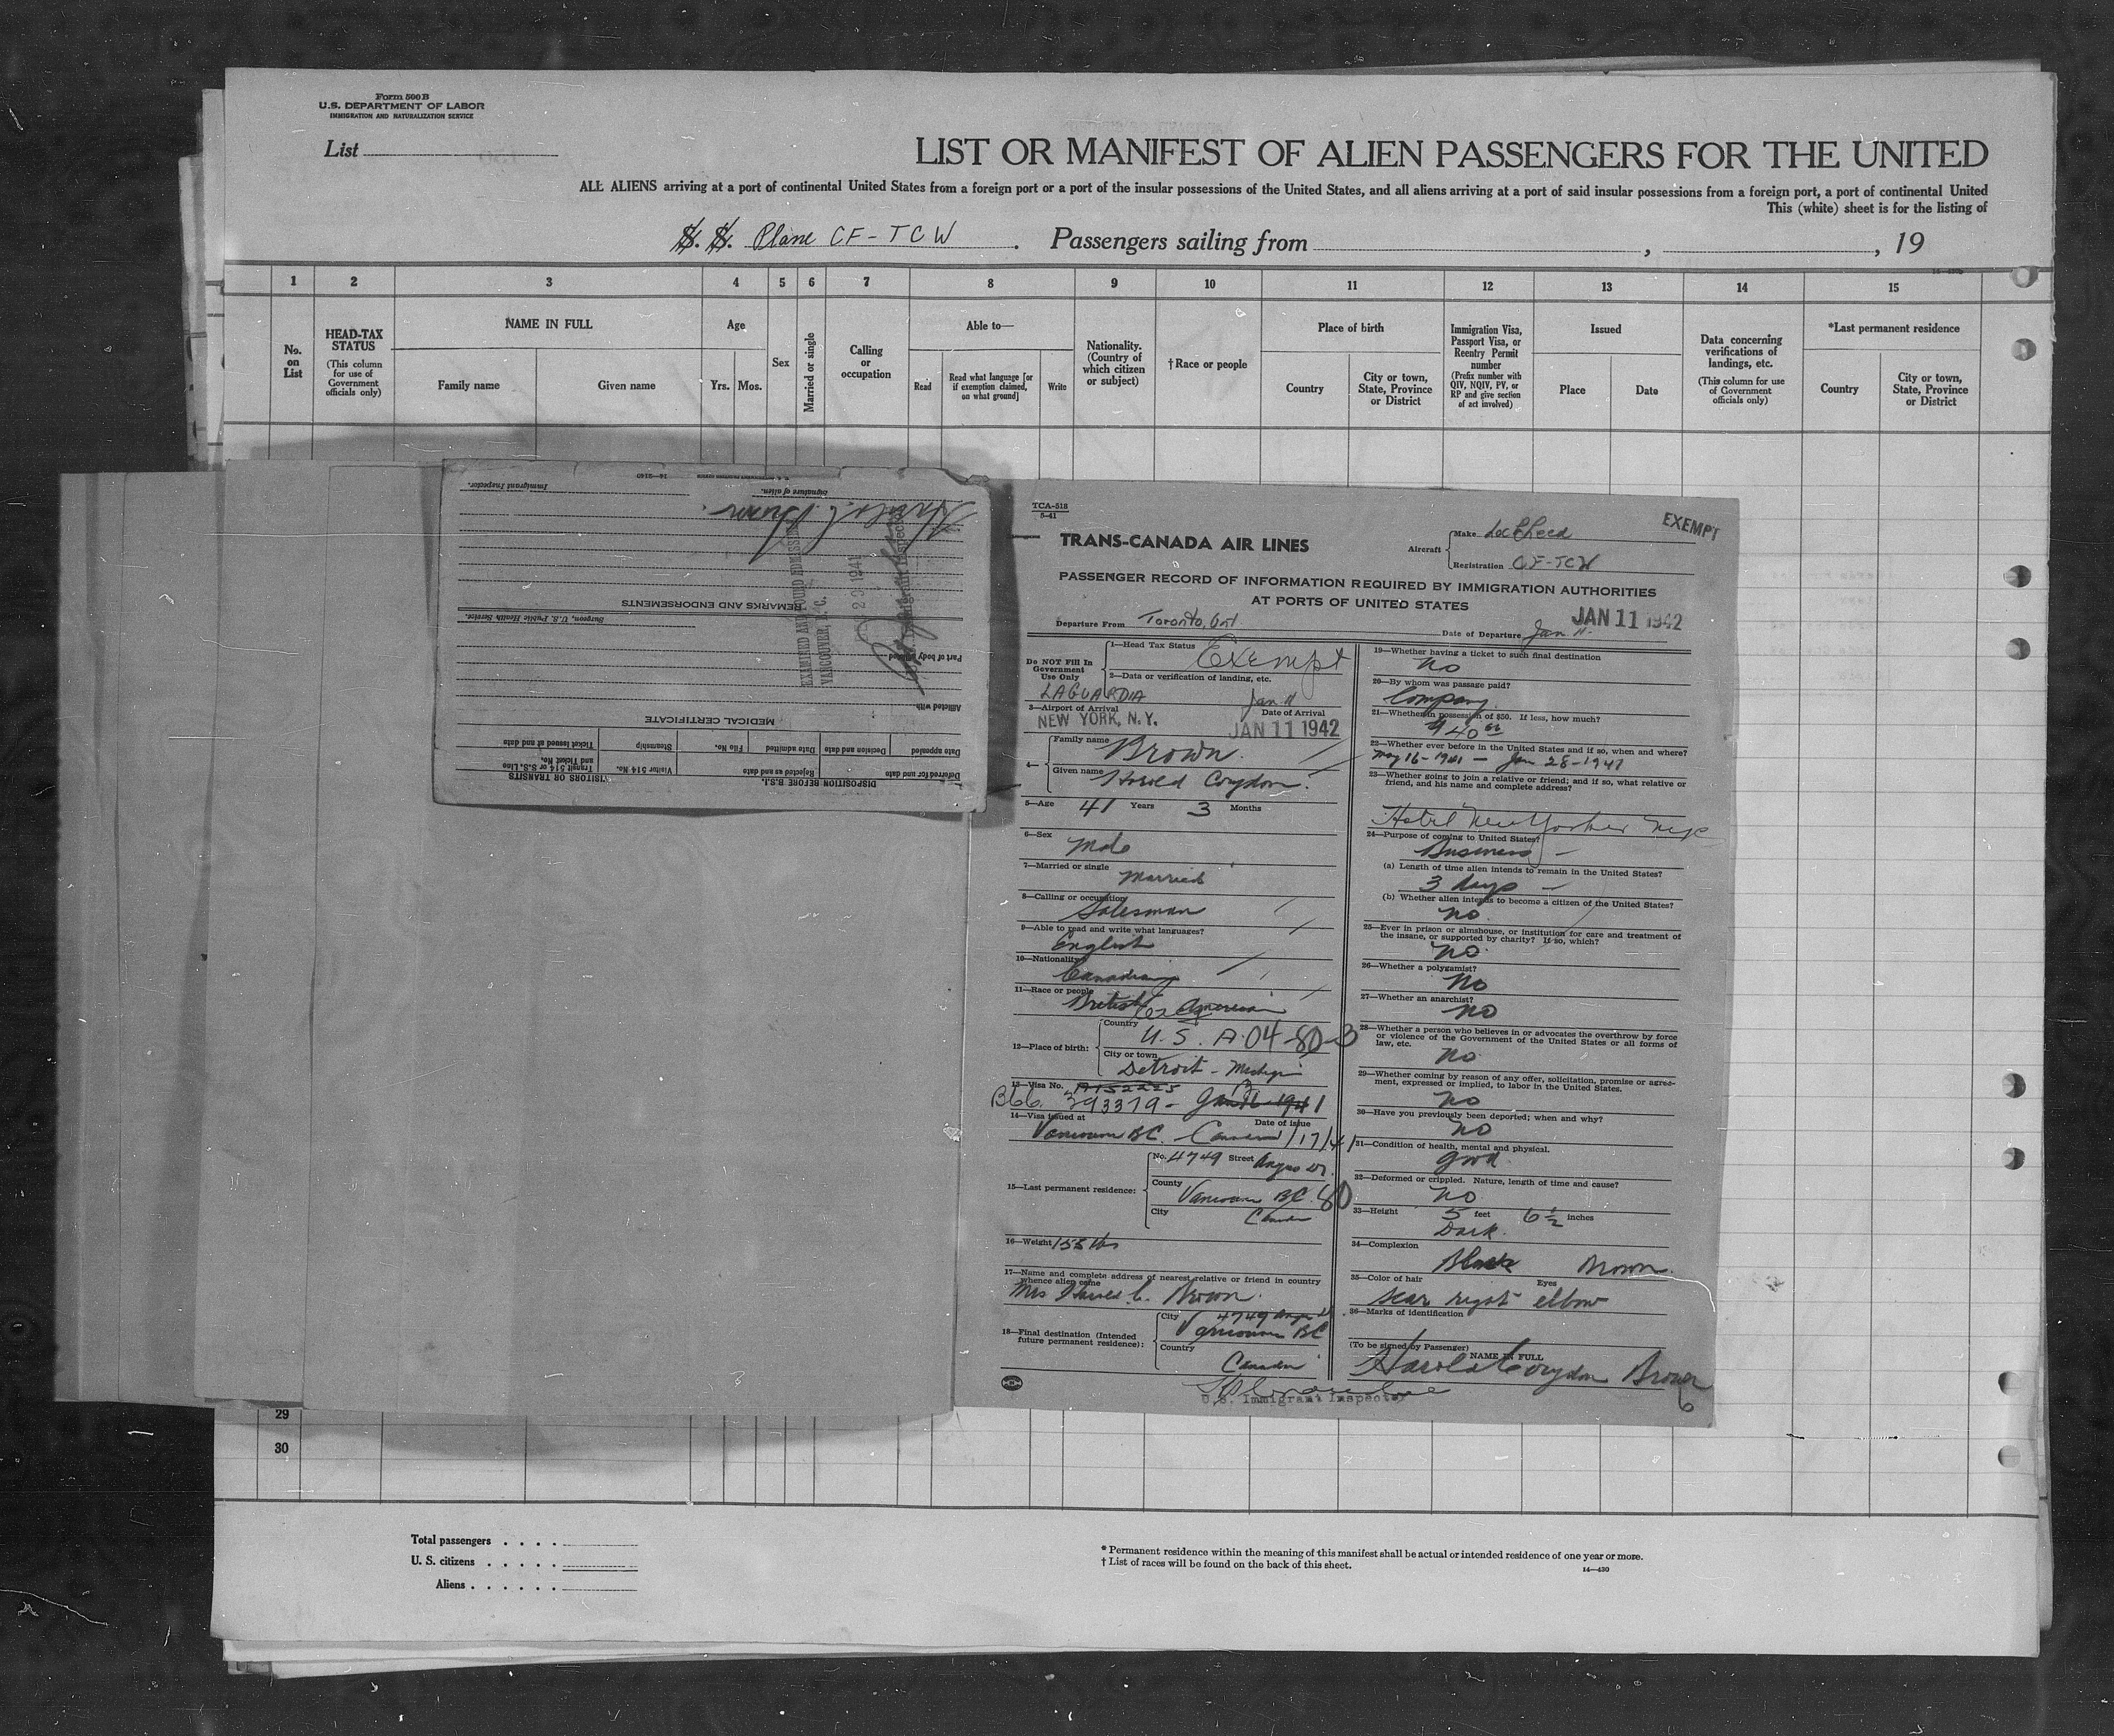 Form 500B
U.S. DEPARTMENT OF LABOR
IMMIGRATION AND NATURALIZATION SERVICE
List
LIST OR MANIFEST OF ALIEN PASSENGERS FOR THE UNITED
ALL ALIENS arriving at a port of continental United States from a foreign port or a port of the insular possessions of the United States, and all aliens arriving at a port of said insular possessions from a foreign port, a port of continental United
This (white) sheet is for the listing of
S. S. Plane CF-TCW . Passengers sailing from , , 19
1 2 3 4 5 6 7 8 9 10 11 12 13 14 15
No. on List
HEAD-TAX STATUS
(This column for use of Government officials only)
NAME IN FULL
Family name
Given name
Age
Yrs. Mos.
Sex
Married or single
Calling or occupation
Able to—
Read
Read what language [or if exemption claimed, on what ground]
Write
Nationality. (Country of which citizen or subject)
†Race or people
Place of birth
Country
City or town, State, Province or District
Immigration Visa, Passport Visa, or Reentry Permit number
(Prefix number with QIV, NQIV, PV, or RP and give section of act involved)
Issued
Place
Date
Data concerning verifications of landings, etc.
(This column for use of Government officials only)
*Last permanent residence
Country
City or town, State, Province or District
DISPOSITION BEFORE B.S.I.
VISITORS OR TRANSITS
Deferred for and date
Rejected as and date
Visitor 514 No.
Transit 514 or S.S. Line and Ticket No.
Date appealed
Decision and date
Date admitted
File No.
Steamship
Ticket issued at and date
MEDICAL CERTIFICATE
Afflicted with
Part of body affected
Surgeon, U.S. Public Health Service.
REMARKS AND ENDORSEMENTS
EXAMINED AND FOUND ADMISSIBLE
VANCOUVER, B.C.
23 1941
Immigrant Inspector
Harold C. Brown
Signature of alien.
Immigrant Inspector.
TCA-518
5-41
EXEMPT
TRANS-CANADA AIR LINES
Aircraft
Make Lockheed
Registration CF-TCW
PASSENGER RECORD OF INFORMATION REQUIRED BY IMMIGRATION AUTHORITIES
AT PORTS OF UNITED STATES
JAN 11 1942
Departure From Toronto, Ont
Date of Departure Jan. 11.
Do NOT Fill In Government Use Only
1—Head Tax Status Exempt
2—Data or verification of landing, etc.
LAGUARDIA Jan 11
3—Airport of Arrival
Date of Arrival
NEW YORK, N.Y. JAN 11 1942
4—
Family name Brown.
Given name Harold Corydon.
5—Age 41 Years 3 Months
6—Sex Male
7—Married or single Married
8—Calling or occupation Salesman
9—Able to read and write what languages?
English
10—Nationality
Canadian
11—Race or people
British American
12—Place of birth:
Country U. S. A. 04-80-3
City or town Detroit - Michigan
13—Visa No.
B66. 393379 -
14—Visa issued at
Date of issue
Vancouver BC. Canada 1/17/41
15—Last permanent residence:
No. 4749 Street Angus Dr.
County Vancouver BC. 80
City Canada
16—Weight 155 lbs
17—Name and complete address of nearest relative or friend in country whence alien came
Mrs Harold C. Brown.
18—Final destination (Intended future permanent residence):
City 4749 Angus Dr.
Vancouver BC
Country
Canada
U.S. Immigrant Inspector
19—Whether having a ticket to such final destination
No
20—By whom was passage paid?
Company.
21—Whether in possession of $50. If less, how much?
$40
22—Whether ever before in the United States and if so, when and where?
May 16-1941 - Jan 28-1941
23—Whether going to join a relative or friend; and if so, what relative or friend, and his name and complete address?
Hotel New Yorker NYC
24—Purpose of coming to United States?
Business -
(a) Length of time alien intends to remain in the United States?
3 days -
(b) Whether alien intends to become a citizen of the United States?
No.
25—Ever in prison or almshouse, or institution for care and treatment of the insane, or supported by charity? If so, which?
No.
26—Whether a polygamist?
No
27—Whether an anarchist?
No
28—Whether a person who believes in or advocates the overthrow by force or violence of the Government of the United States or all forms of law, etc.
No.
29—Whether coming by reason of any offer, solicitation, promise or agreement, expressed or implied, to labor in the United States.
No
30—Have you previously been deported; when and why?
No
31—Condition of health, mental and physical.
Good.
32—Deformed or crippled. Nature, length of time and cause?
No
33—Height 5 feet 6½ inches
Dark.
34—Complexion
Black Brown.
35—Color of hair Eyes
Scar right elbow
36—Marks of identification
(To be signed by Passenger)
NAME IN FULL
Harold Corydon Brown
6
29
30
Total passengers . . . .
U. S. citizens . . . . .
Aliens . . . . . .
* Permanent residence within the meaning of this manifest shall be actual or intended residence of one year or more.
† List of races will be found on the back of this sheet.
14—430